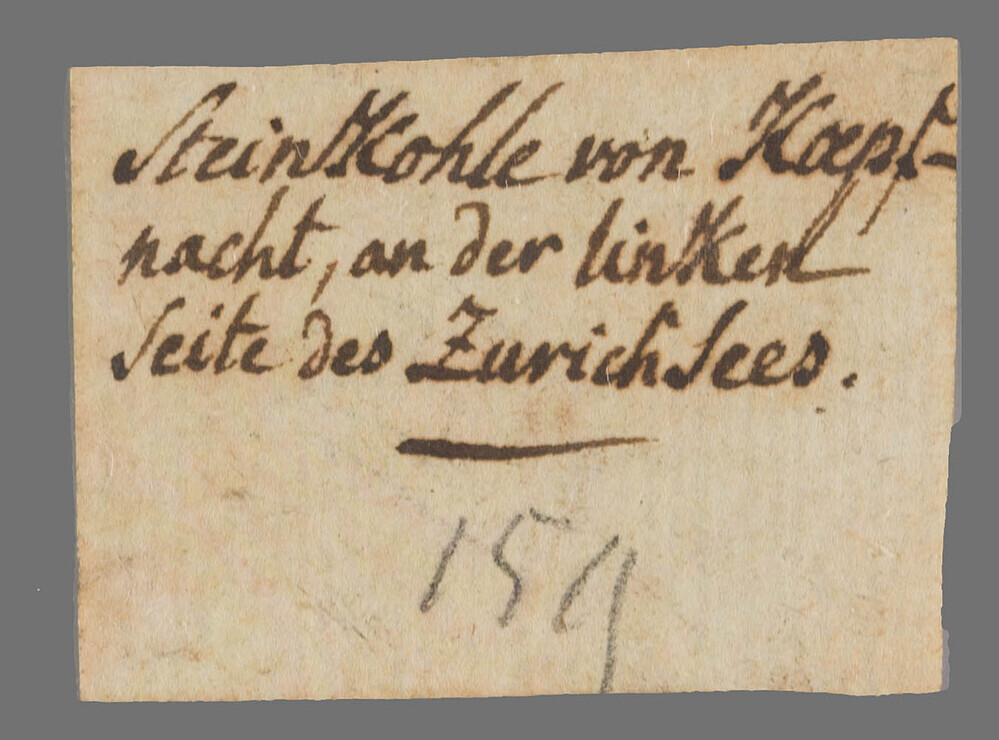 SteinKohle von Kæpf-
nacht, an der linKen
Seite des ZurichSees.
159